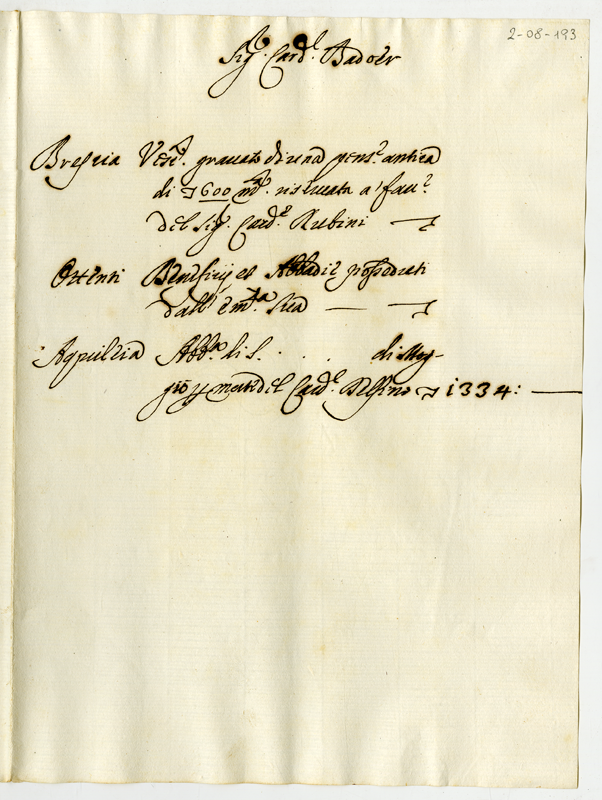 2-08-193
Sig.r Card.l Badoer
Brescia Vesc.o gravato di una pens.e antica
di 1600 m.ta riservata a' fav.e
del Sig.r Card.l Rubini
Ottenti Beneficij et Abbadie possedati
dall' em.za Sua
Aquileia Abb.a di S. . . . di Mog-
gio p morte del Card.l Delfino 1334: